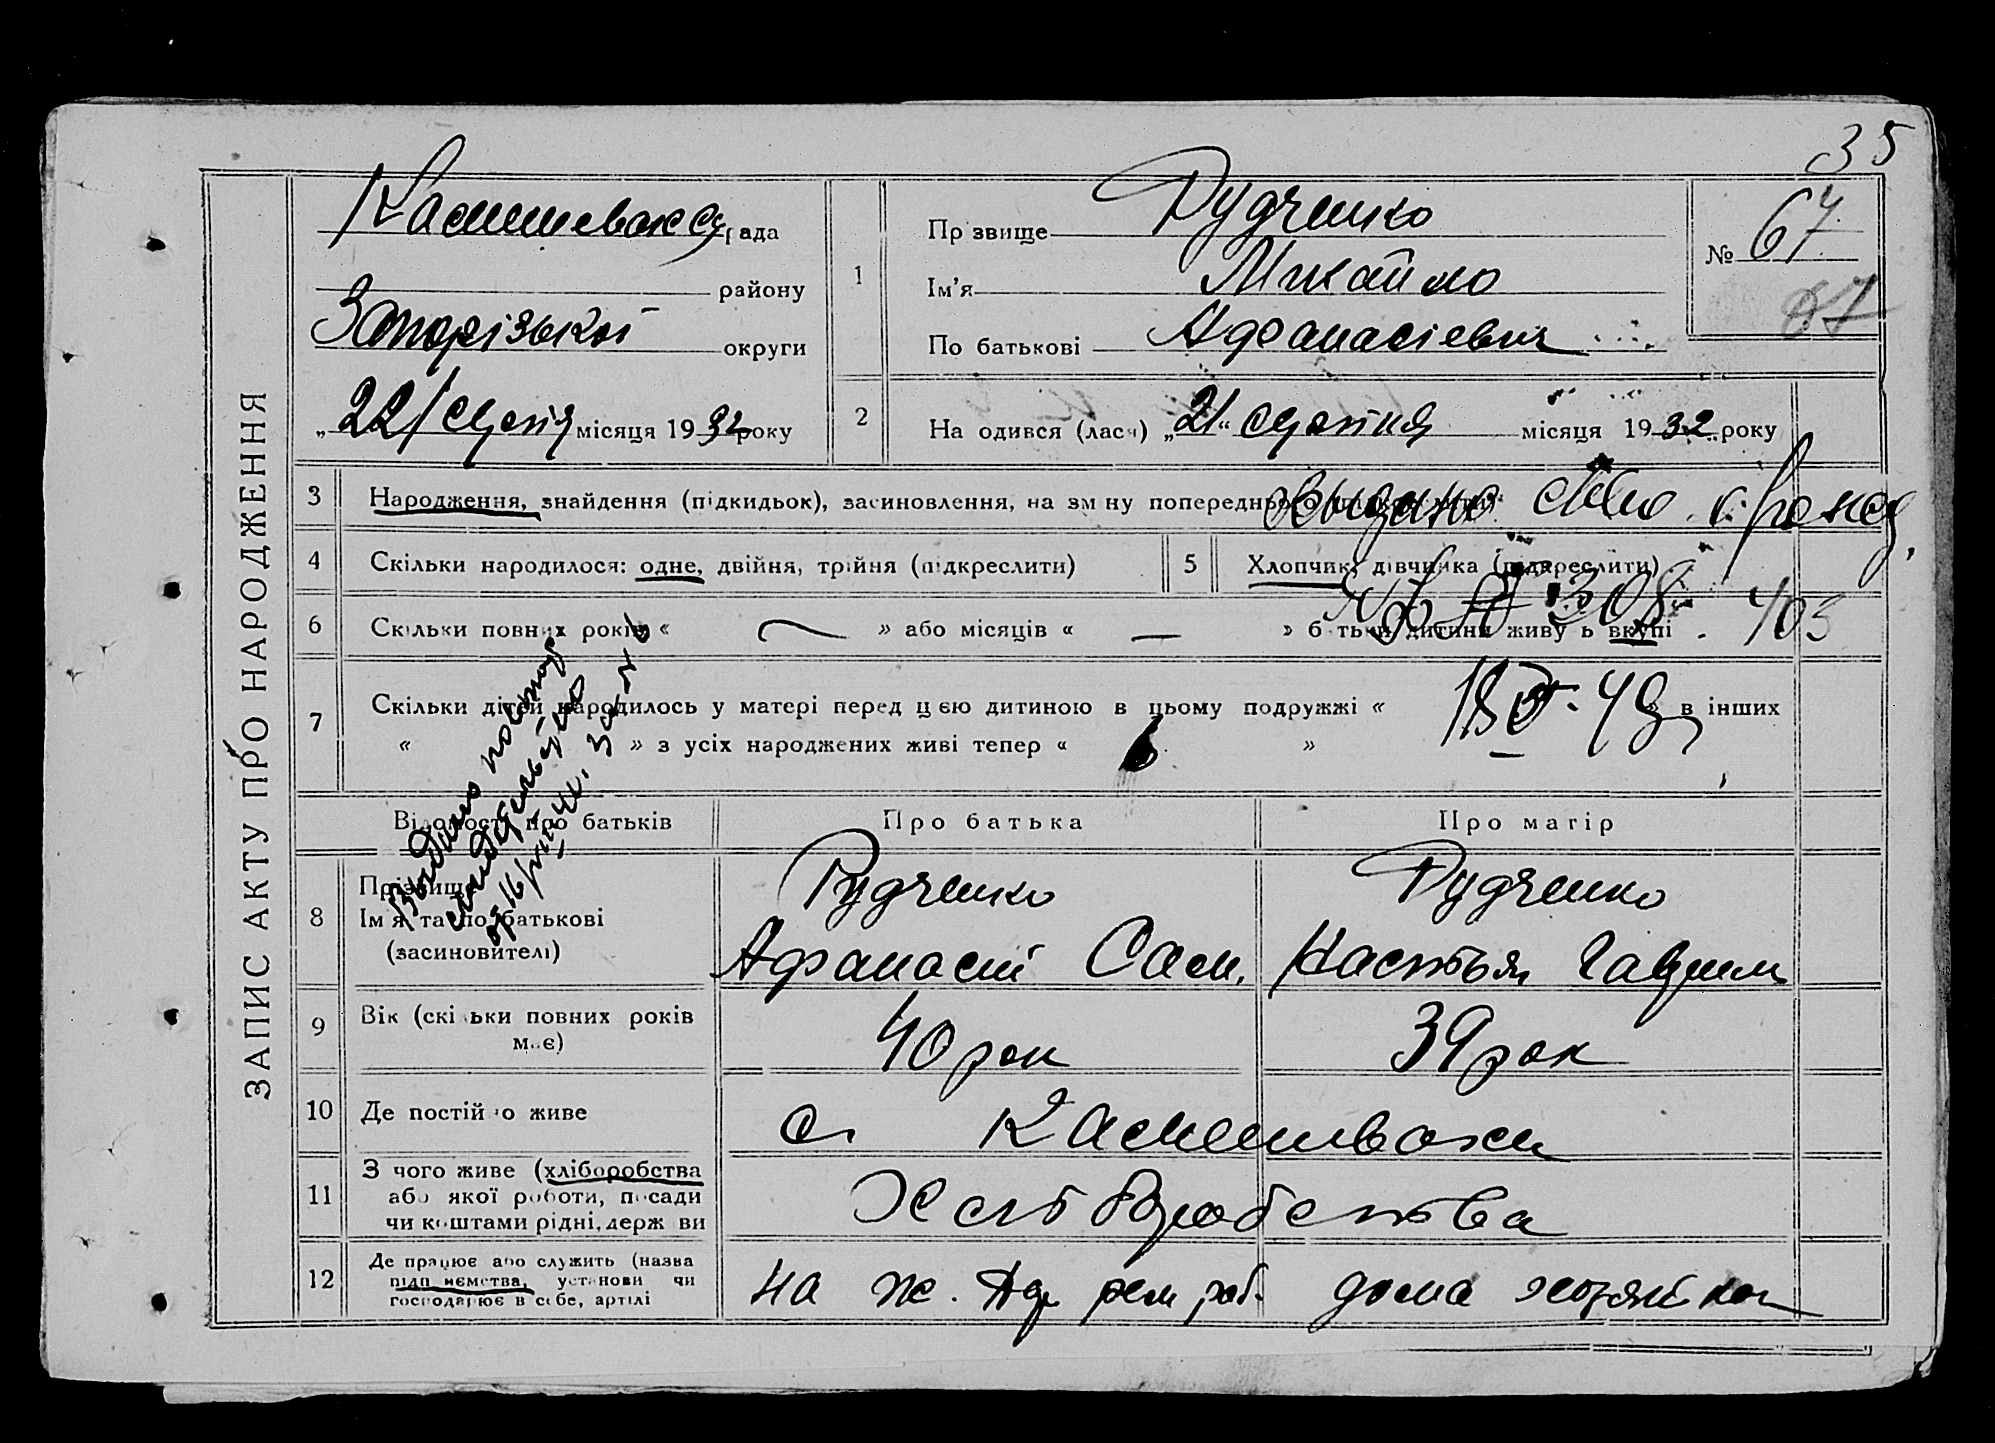 35
ЗАПИС АКТУ ПРО НАРОДЖЕННЯ
Камишевахск рада
району
Запорізької округи
„22/ серпня місяця 1932 року
1
Прізвище Рудченко
Ім'я Михайло
По батькові Афанасієвич
№ 67
67
2
На одився (лася) „21“ серпня місяця 1932 року
3
Народження, знайдення (підкидьок), засиновлення, на зм ну попереднього
Выдано
4
Скільки народилося: одне, двійня, трійня (підкреслити)
5
Хлопчик, дівчинка (підкреслити)
308 403
6
Скільки повних років « » або місяців « — » б тьки дитини живу ь вкупі
7
Скільки дітей народилось у матері перед цією дитиною в цьому подружжі « » в інших
« » з усіх народжених живі тепер « 6 »
Выдано повторн
свидетельство
Відомості про батьків
Про батька
Про матір
8
Прізвище
Ім'я та по батькові
(засиновителі)
Рудченко
Афанасій Сам.
Рудченко
Настья Гаврил
9
Вік (скільки повних років має)
40 рок
39 рок
10
Де постійно живе
с. Камешваха
11
З чого живе (хліборобства
або якої роботи, посади
чи коштами рідні, держ ви
Хліборобства
12
Де працює або служить (назва
підп иємства, установи чи
господарює в себе, артілі
на ж. рем раб.
дома хозяйка